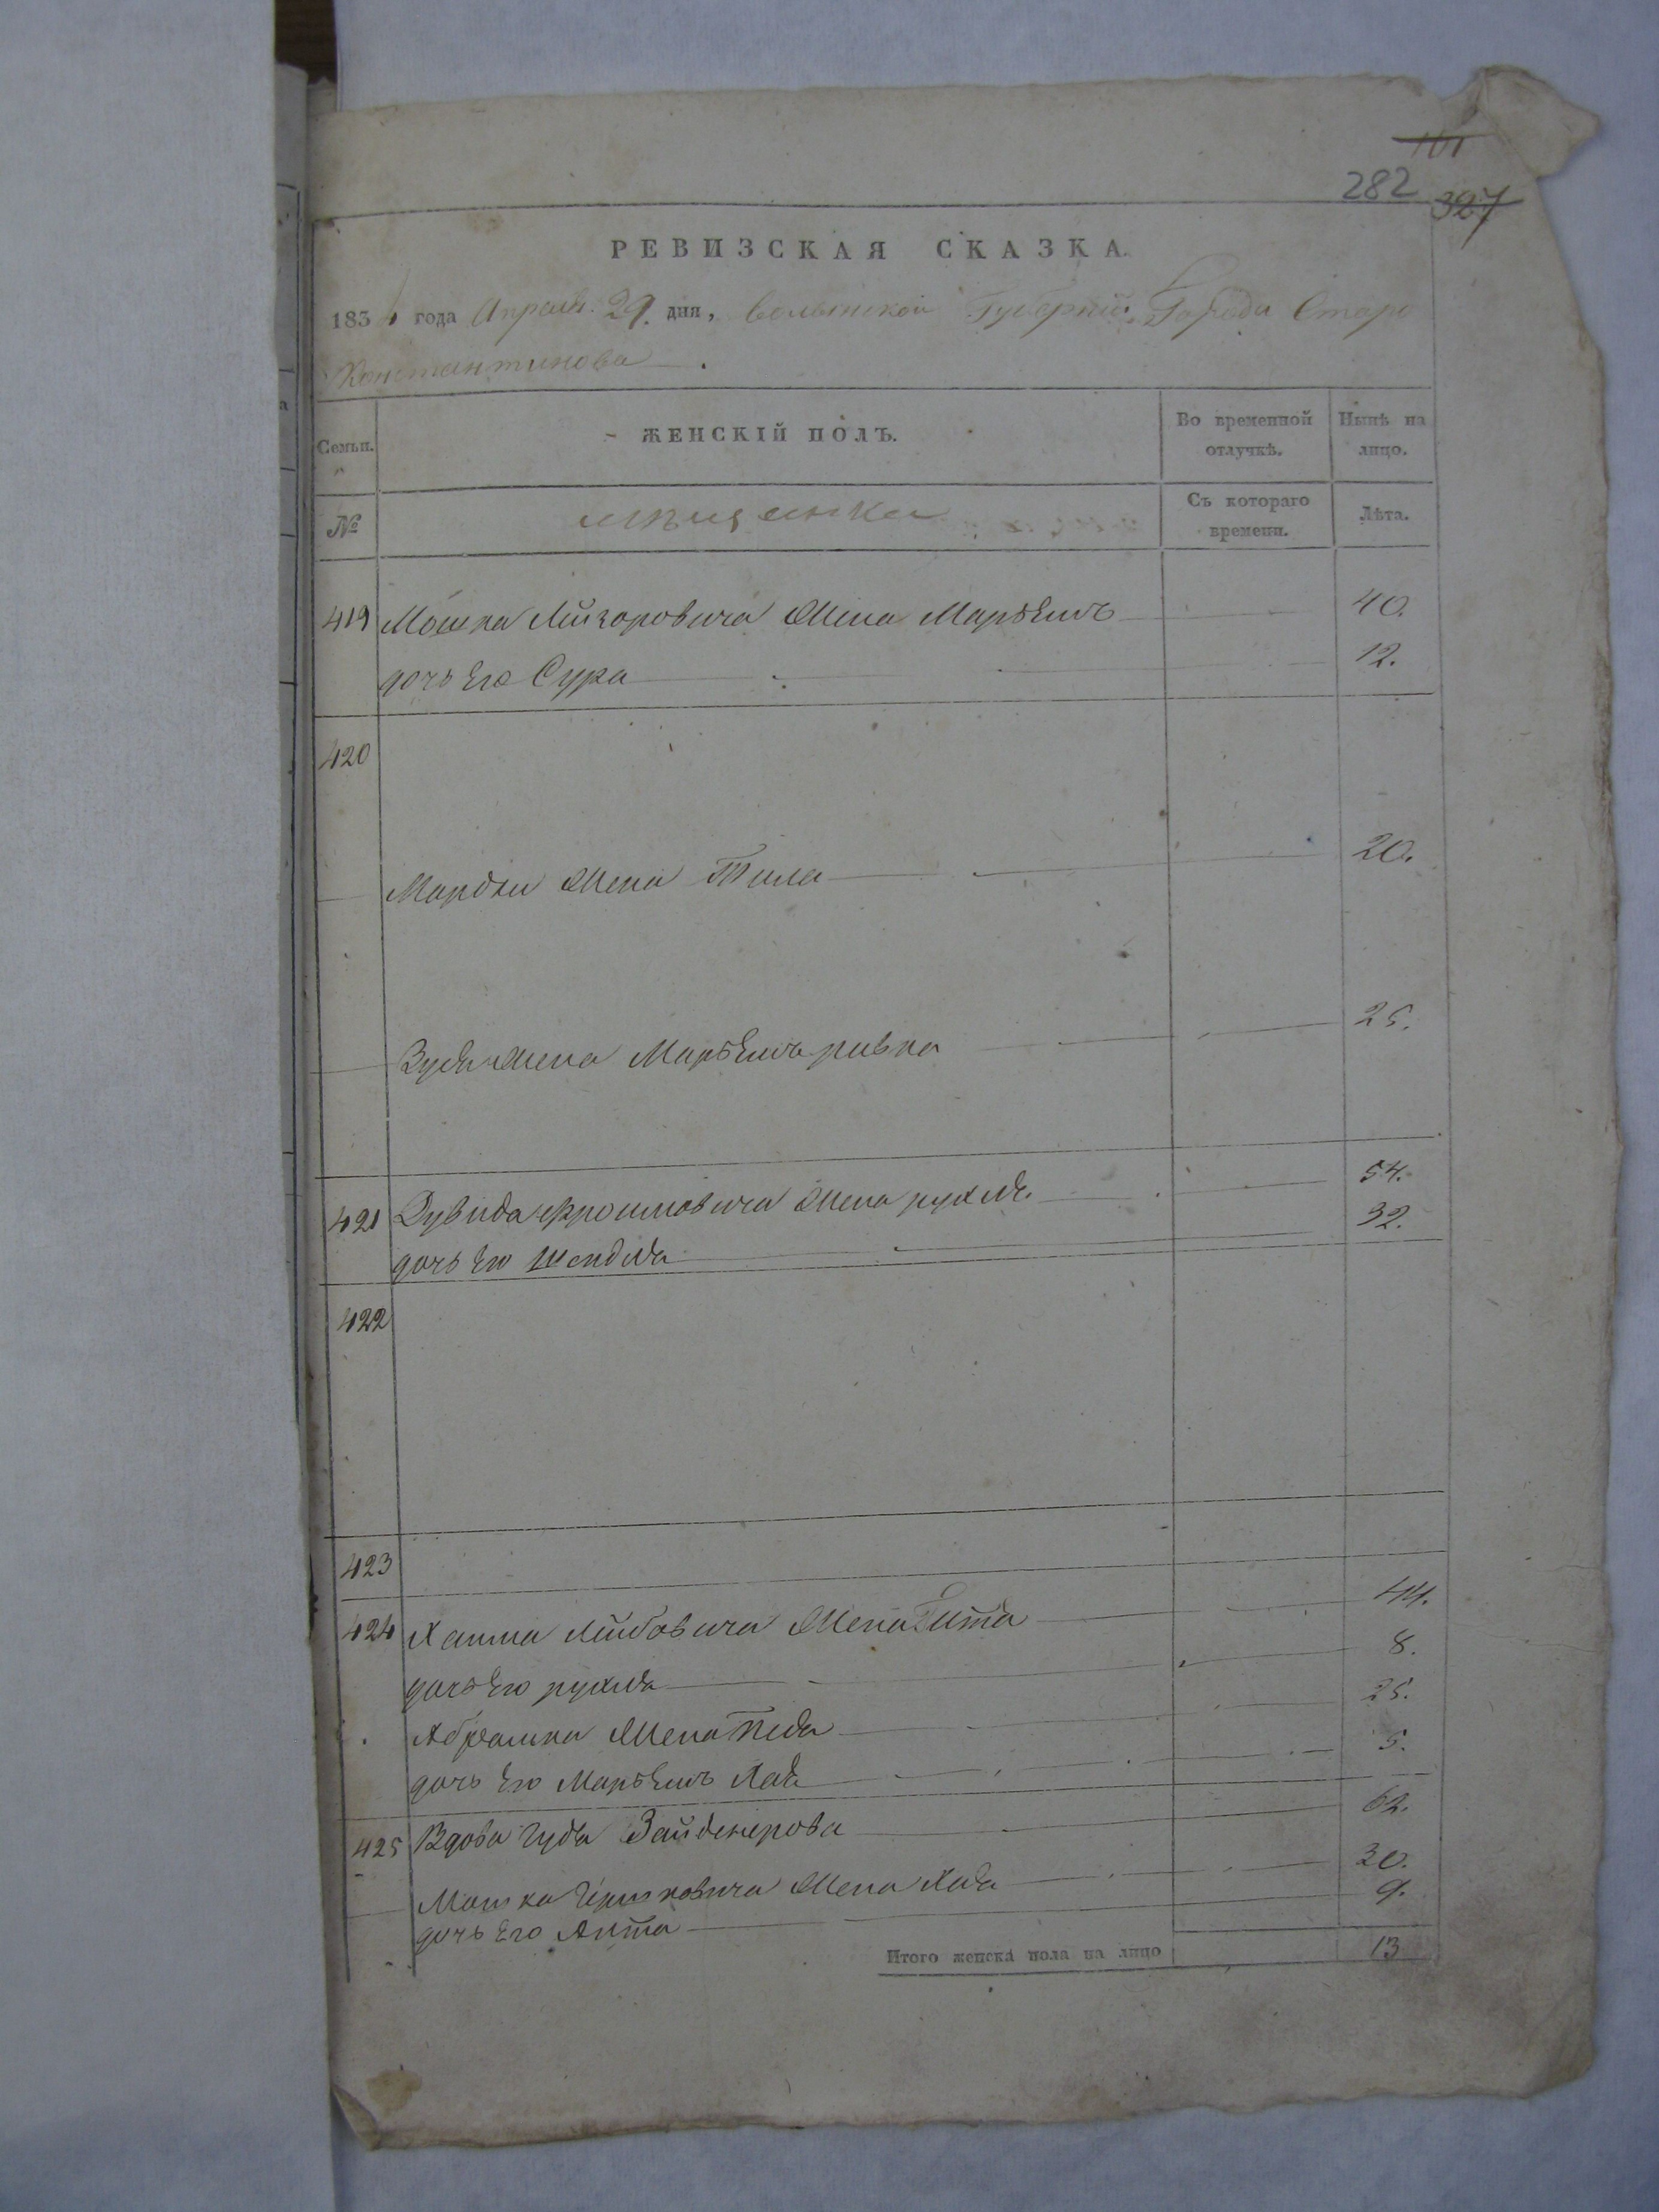 101
282 327
РЕВИЗСКАЯ СКАЗКА.
1834 года Апреля 29. дня, Волынской Губернии, Города Старо
Константинова.
Семьи. ЖЕНСКІЙ ПОЛЪ. Во временной отлучкѣ. Нынѣ на лицо.
№ мѣщанки Съ котораго времени. Лѣта.
419 Мошка Лейзоровича жена Марьемъ 40.
дочь Его Сура 12.
420
Мордки жена 20.
Зуси жена Марьемъ ривка 25.
421 Дувида Фроимовича жена рухля 54.
дочь Его Шендля 32.
422
423
424 Хаима Лейбовича жена Гитя 44.
дочь Его рухля 8.
Абрамка жена 25.
дочь Его Марьемъ Хая 5.
425 Вдова 62.
Мошка жена Хая 30.
дочь Его 9.
Итого женска пола на лицо 13